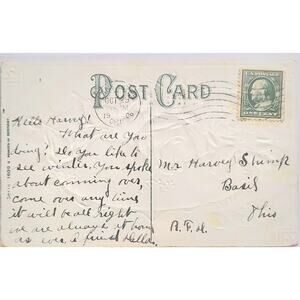 POST CARD
OCT 25
19
OHIO
U.S. POSTAGE
ONE CENT
Hello Harvey!
What are You
doing? Do You like to
see winter. You spoke
about comming over,
come over any time
it will be all right
we are always at home
as ever a friend
Mr Harvey Shimp
Basil
Ohio
R.F.D.